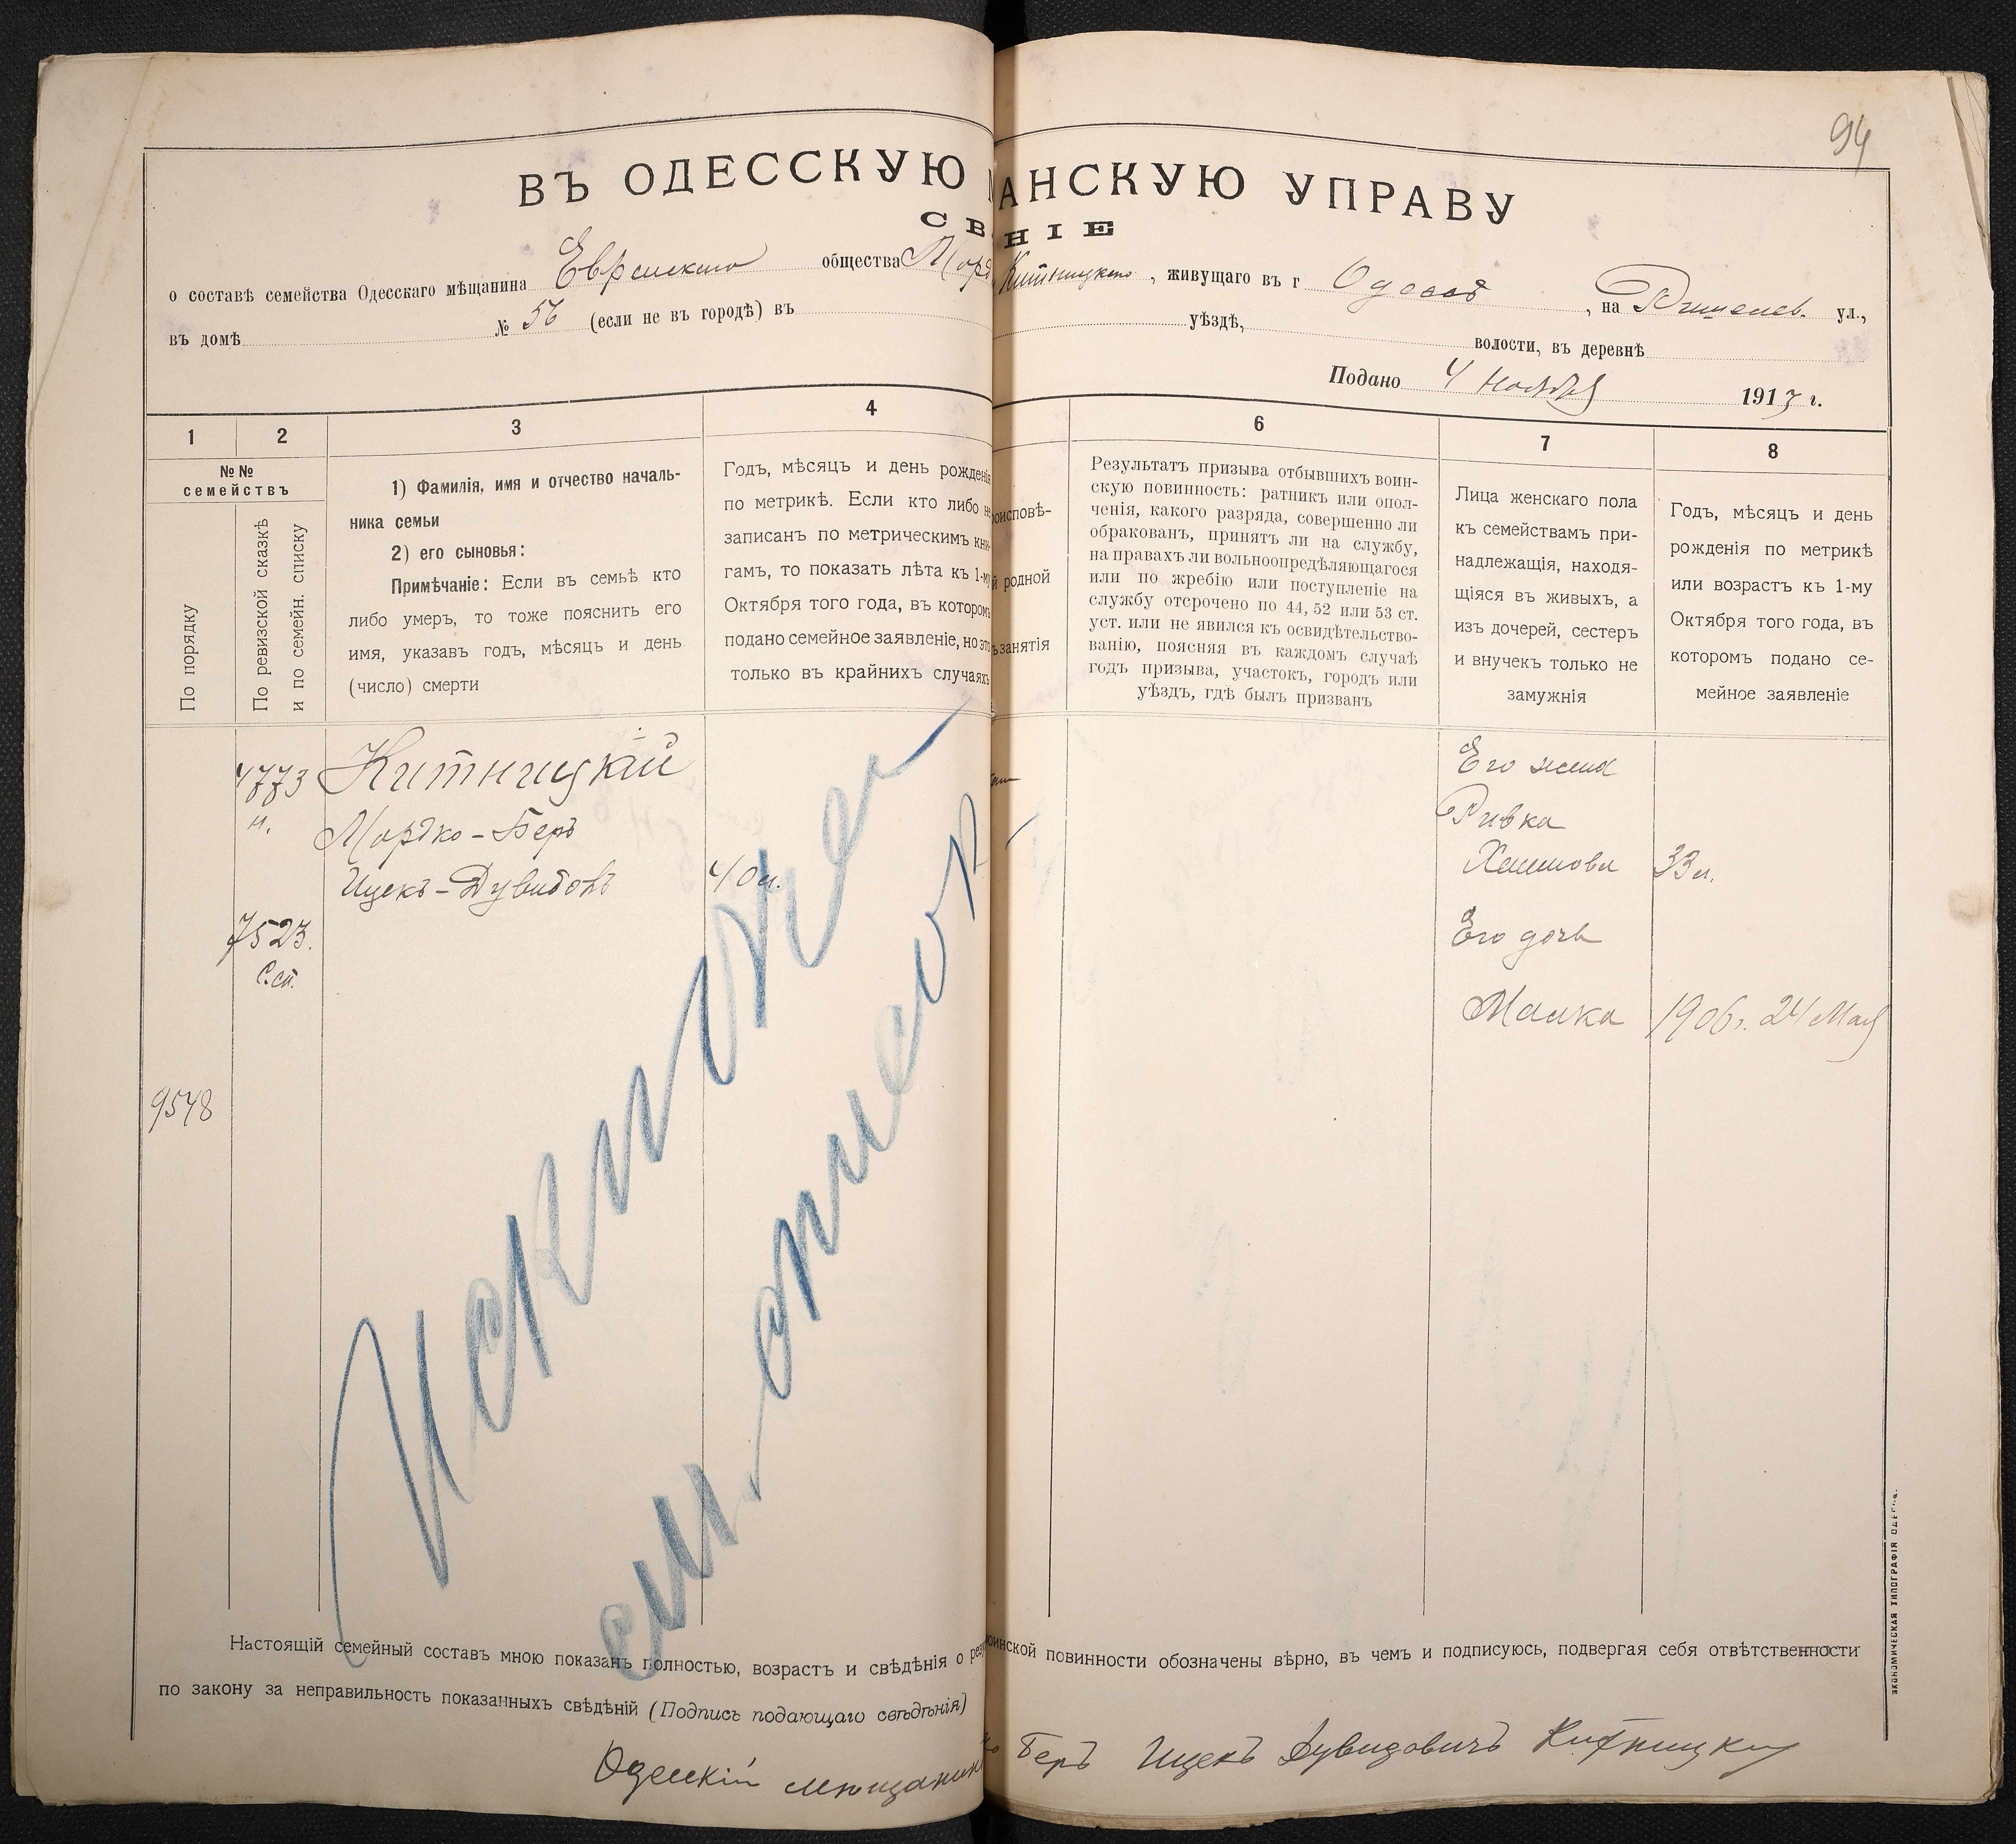 94
ВЪ ОДЕССКУЮ АНСКУЮ УПРАВУ
СВ НІЕ
о составѣ семейства Одесскаго мѣщанина Еврейскаго общества Морд Китницкаго, живущаго въ г Одессѣ, на Ришельев. ул.,
въ домѣ № 56 (если не въ городѣ) въ уѣздѣ, волости, въ деревнѣ
Подано 4 ноября 1913 г.
1 2 3 4 6 7 8
№№
семействъ
По порядку
По ревизской сказкѣ
и по семейн. списку
1) Фамилія, имя и отчество началь-
ника семьи
2) его сыновья:
Примѣчаніе: Если въ семьѣ кто
либо умеръ, то тоже пояснить его
имя, указавъ годъ, мѣсяцъ и день
(число) смерти
Годъ, мѣсяцъ и день рожденія
по метрикѣ. Если кто либо не
записанъ по метрическимъ кни-
гамъ, то показать лѣта къ 1-му
Октября того года, въ которомъ
подано семейное заявленіе, но это
только въ крайнихъ случаяхъ
роисповѣ-
й родной
ъ занятія
Результатъ призыва отбывшихъ воин-
скую повинность: ратникъ или опол-
ченія, какого разряда, совершенно ли
обракованъ, принятъ ли на службу,
на правахъ ли вольноопредѣляющагося
или по жребію или поступленіе на
службу отсрочено по 44, 52 или 53 ст.
уст. или не явился къ освидѣтельство-
ванію, поясняя въ каждомъ случаѣ
годъ призыва, участокъ, городъ или
уѣздъ, гдѣ былъ призванъ
Лица женскаго пола
къ семействамъ при-
надлежащія, находя-
щіяся въ живыхъ, а
изъ дочерей, сестеръ
и внучекъ только не
замужнія
Годъ, мѣсяцъ и день
рожденія по метрикѣ
или возрастъ къ 1-му
Октября того года, въ
которомъ подано се-
мейное заявленіе
4773 Китницкій
н. Мордко-Беръ
Ицекъ-Дувидовъ 40 л.
7523.
С.сп.
9548
Его жена
Ривка
Хаимова 33 л.
Его дочь
Малка 1906 г. 24 Мая
Исключен
см. описок
Настоящій семейный составъ мною показанъ полностью, возрастъ и свѣдѣнія о резу оинской повинности обозначены вѣрно, въ чемъ и подписуюсь, подвергая себя отвѣтственности
по закону за неправильность показанныхъ свѣдѣній (Подпись подающаго свѣдѣнія)
Одесскій мѣщанин ко Беръ Ицекъ Дувидовичъ Китницкій
ЭКОНОМИЧЕСКАЯ ТИПОГРАФІЯ ОДЕССА.